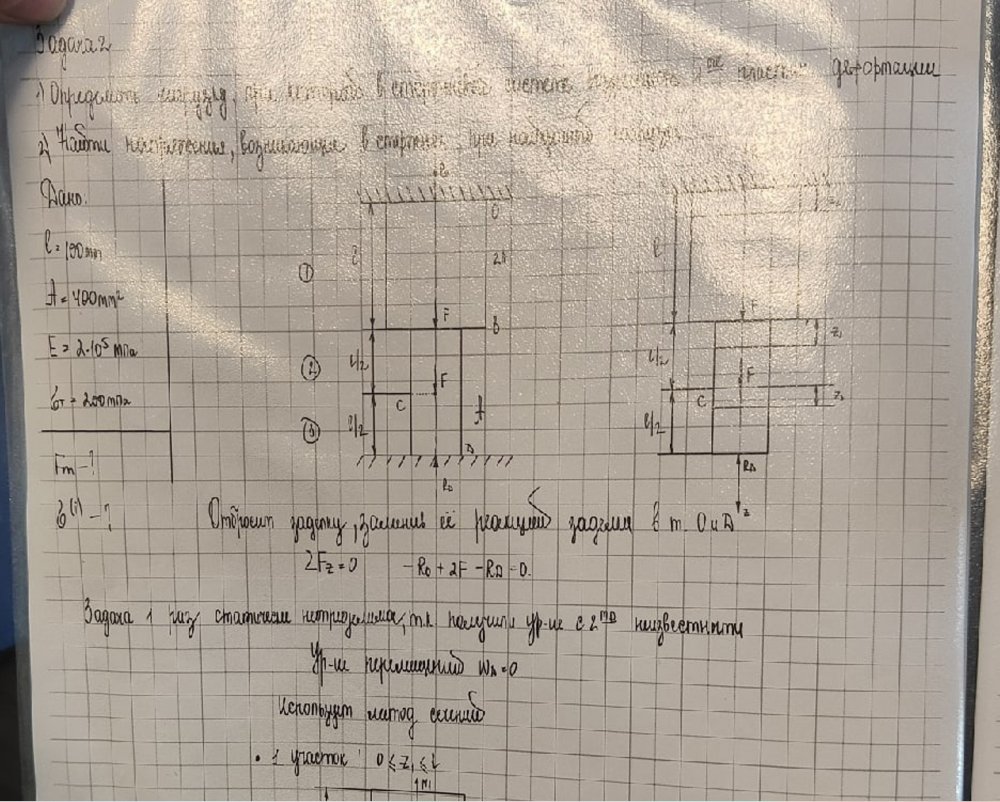 Задача 2
1) Определить нагрузку, при которой в стержневой системе возникнут пластич деформации
2) Найти напряжения, возникающие в стержнях, при найденной нагрузке
Дано:
A = 400 mm²
E = 2·10⁵ мпа
σт = 200 мпа
Fm - ?
σ⁽ⁱ⁾ - ?
①
②
③
l
l/2
l/2
0
2A
F
B
F
C
A
D
l
l/2
l/2
F
F
C
z
Отбросим заделку, заменив её реакцией заделки в т. O и D
ΣFz = 0
Задача 1 раз статически неопределима, т.к получили ур-ие с 2 неизвестными
Ур-ие перемещений
Использует метод сечений
• 1 участок 0 ≤ z₁ ≤ l